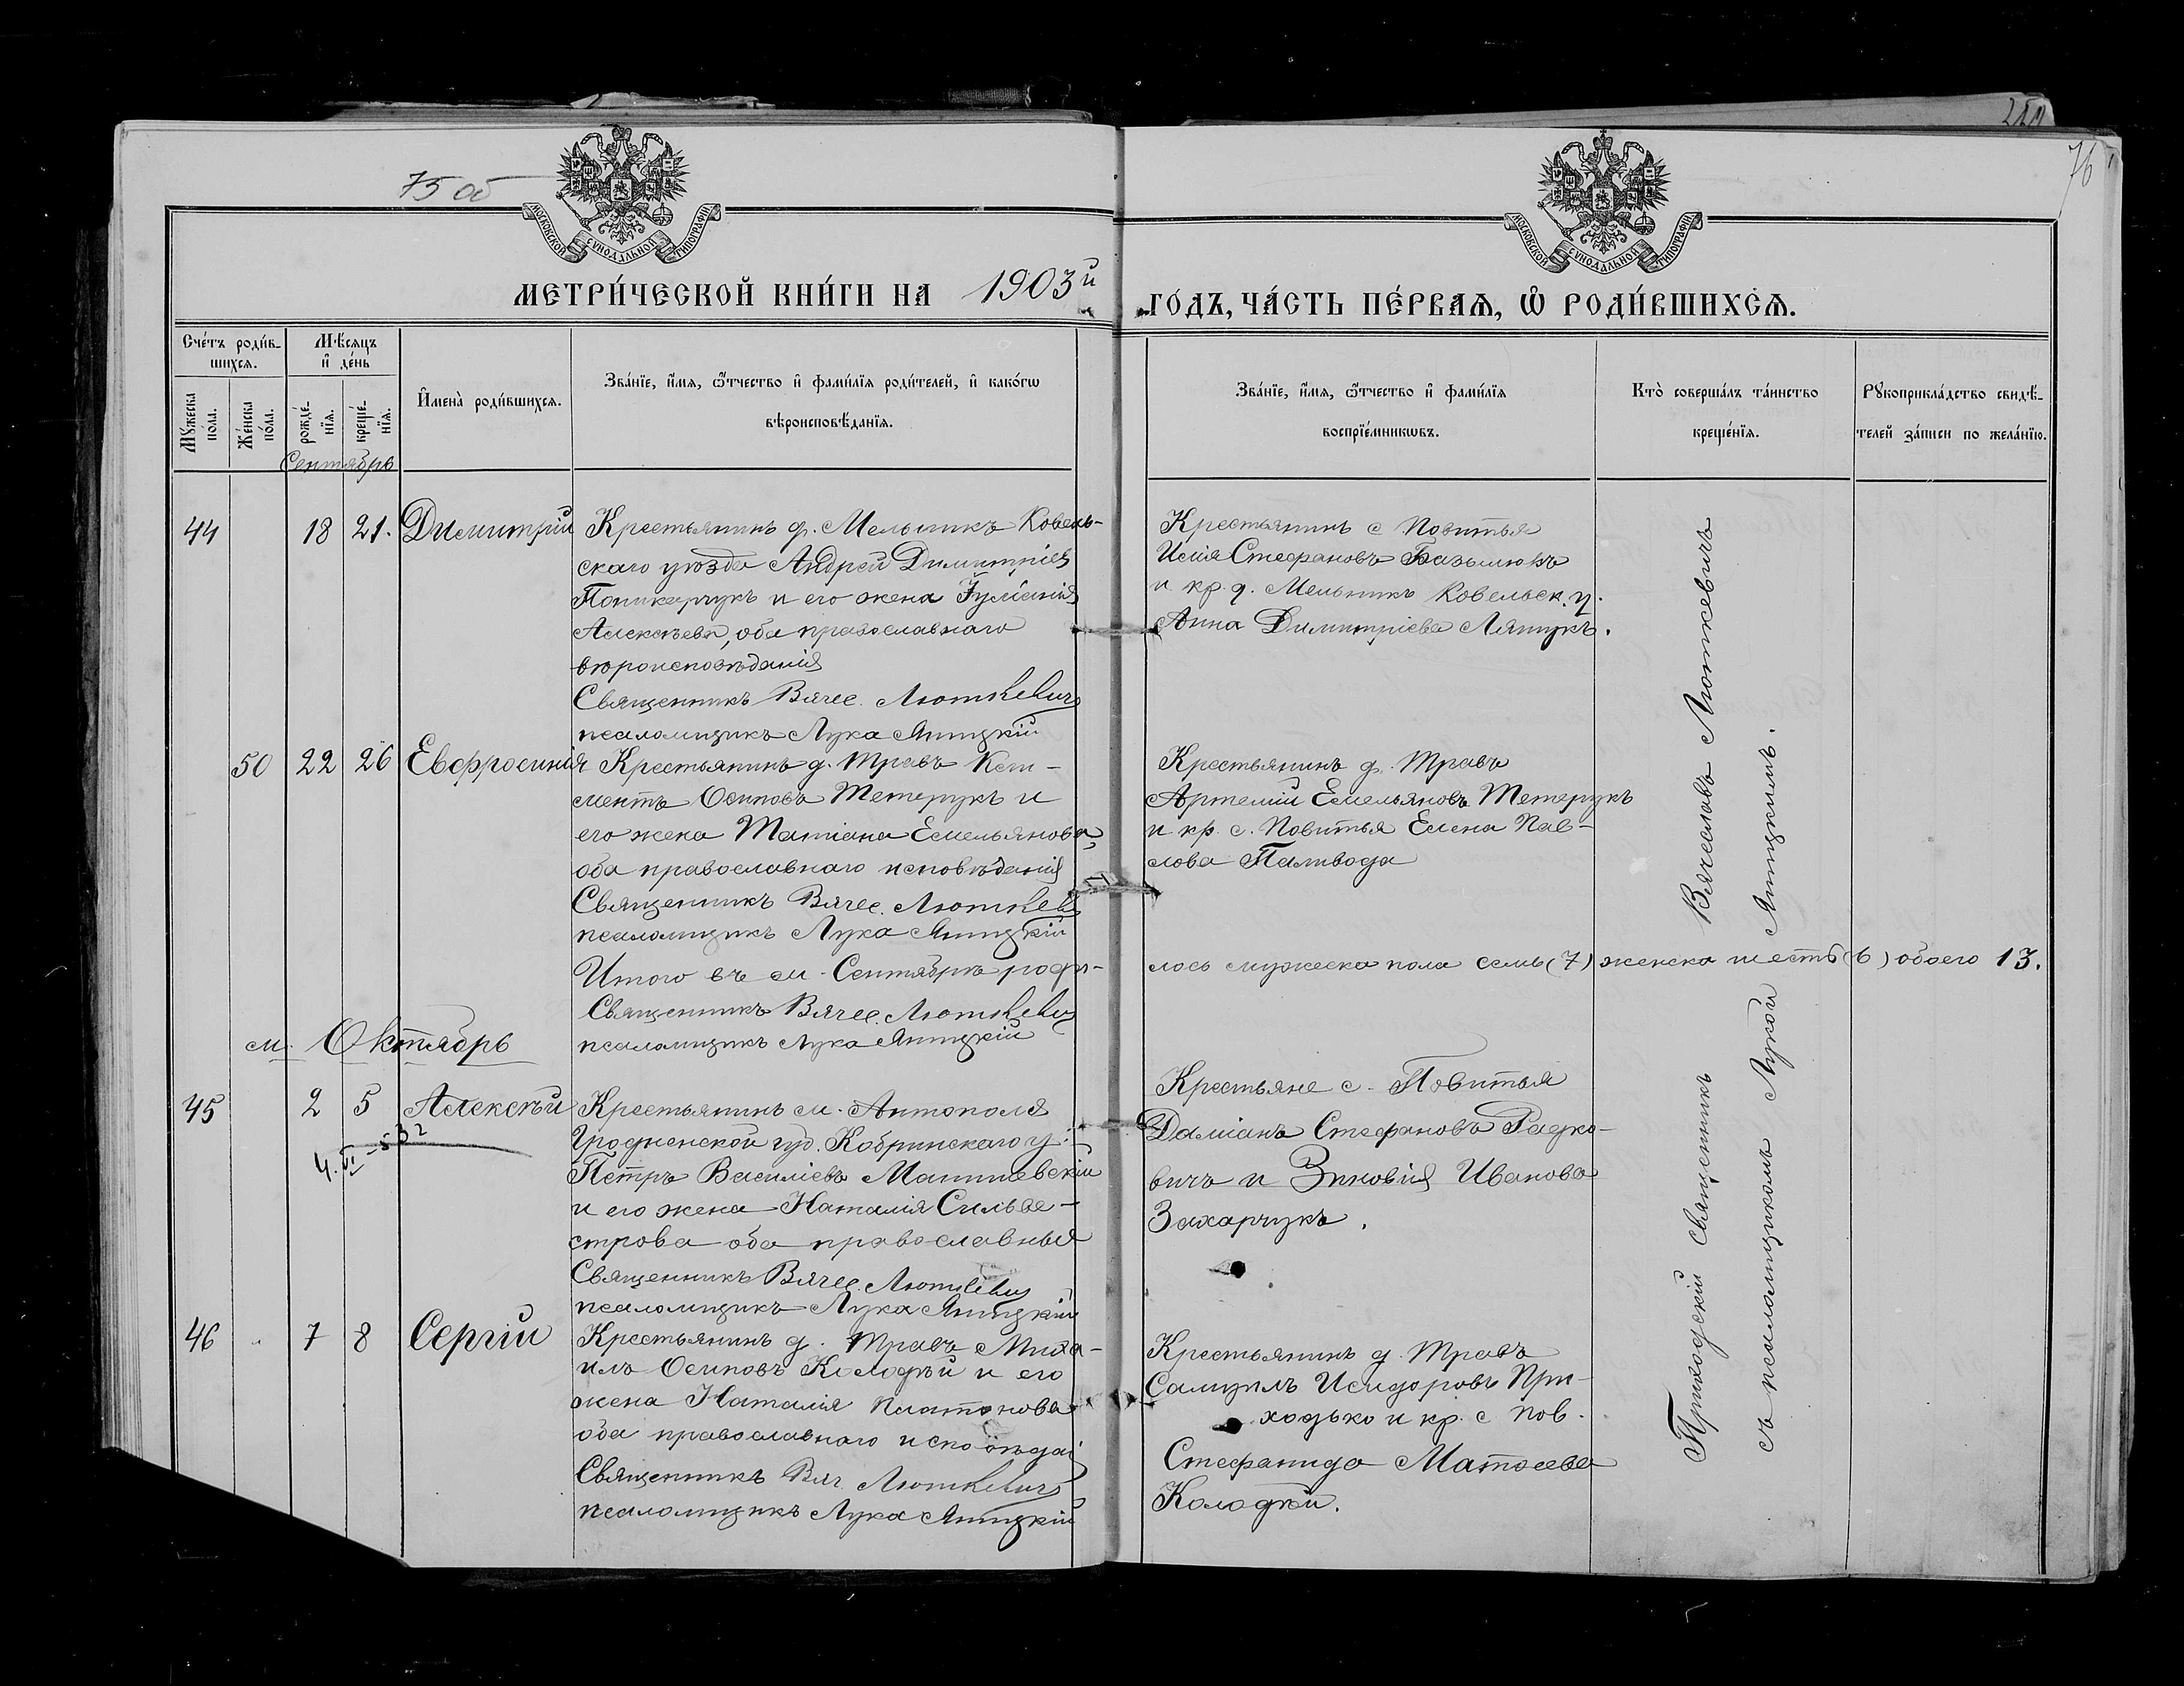 75 об
76
МОСКОВСКОЙ СѴНОДАЛЬНОЙ ТИПОГРАФІИ
МОСКОВСКОЙ СѴНОДАЛЬНОЙ ТИПОГРАФІИ
МЕТРИ́ЧЕСКОЙ КНИ́ГИ НА 1903й
ГО́ДЪ, ЧА́СТЬ ПЕ́РВАѦ, Ѡ҆ РОДИ́ВШИХСѦ.
Сче́тъ роди́в-
шихсѧ.
Мꙋ́жеска
по́ла.
Же́нска
по́ла.
Мѣ́сѧцъ
и҆ де́нь
рожде́-
нїѧ.
креще́-
нїѧ.
И҆мена̀ роди́вшихсѧ.
Зва́нїе, и҆́мѧ, ѻ҆́тчество и҆ фами́лїѧ роди́телей, и҆ како́гѡ
вѣроисповѣ́данїѧ.
Зва́нїе, и҆́мѧ, ѻ҆́тчество и҆ фами́лїѧ
воспрїе́мникѡвъ.
Кто̀ соверша́лъ та́инство
креще́нїѧ.
Рꙋкоприкла́дство свидѣ́-
телей за́писи по жела́нїю.
Сентябрь
44 18 21. Димитрій
Крестьянинъ д. Мельникъ Ковель-
скаго уѣзда Андрей Димитріевъ
и его жена Іуліанія
Алексѣева, оба православнаго
вѣроисповѣданія
Священникъ Вячес. Люткевичъ
псаломщикъ Лука Яницкій
Крестьянинъ с Повитья
Илія Стефановъ Базылюкъ
и кр. д. Мельникъ Ковельск. у.
Анна Димитріева
50 22 26 Евфросинія
Крестьянинъ д. Травъ Кли-
ментъ Осиповъ Тетерукъ и
его жена Татіана Емельянова
оба православнаго исповѣданія
Священникъ Вячес. Люткевичъ
псаломщикъ Лука Яницкій
Крестьянинъ д. Травъ
Артемій Емельяновъ Тетерукъ
и кр. с. Повитья Елена Пав-
лова Паливода
Итого въ м. Сентябрѣ роди-
лось мужеска пола семь (7) женска шесть (6) обоего 13.
Священникъ Вячес. Люткевичъ
псаломщикъ Лука Яницкій
м. Октябрь
45 2 5 Алексѣй
Крестьянинъ м. Антополя
Гродненской губ. Кобринскаго у.
Петръ Василіевъ
и его жена Наталія Сильве-
строва оба православные
Священникъ Вячес. Люткевичъ
псаломщикъ Лука Яницкій
Крестьяне с. Повитья
Даміанъ Стефановъ Радко-
вичъ и Зиновія Иванова
Захарчукъ.
46 7 8 Сергій
Крестьянинъ д. Травъ Миха-
илъ Осиповъ Колодѣй и его
жена Наталія Платонова
оба православнаго
Священникъ Вяч. Люткевичъ
псаломщикъ Лука Яницкій
Крестьянинъ д. Травъ
Самуилъ Исидоровъ При-
ходько и кр. с Пов.
Стефанида Матѳеева
Колодѣй.
Приходскій Священникъ Вячеславъ Люткевичъ
съ псаломщикомъ Лукой Яницкимъ.